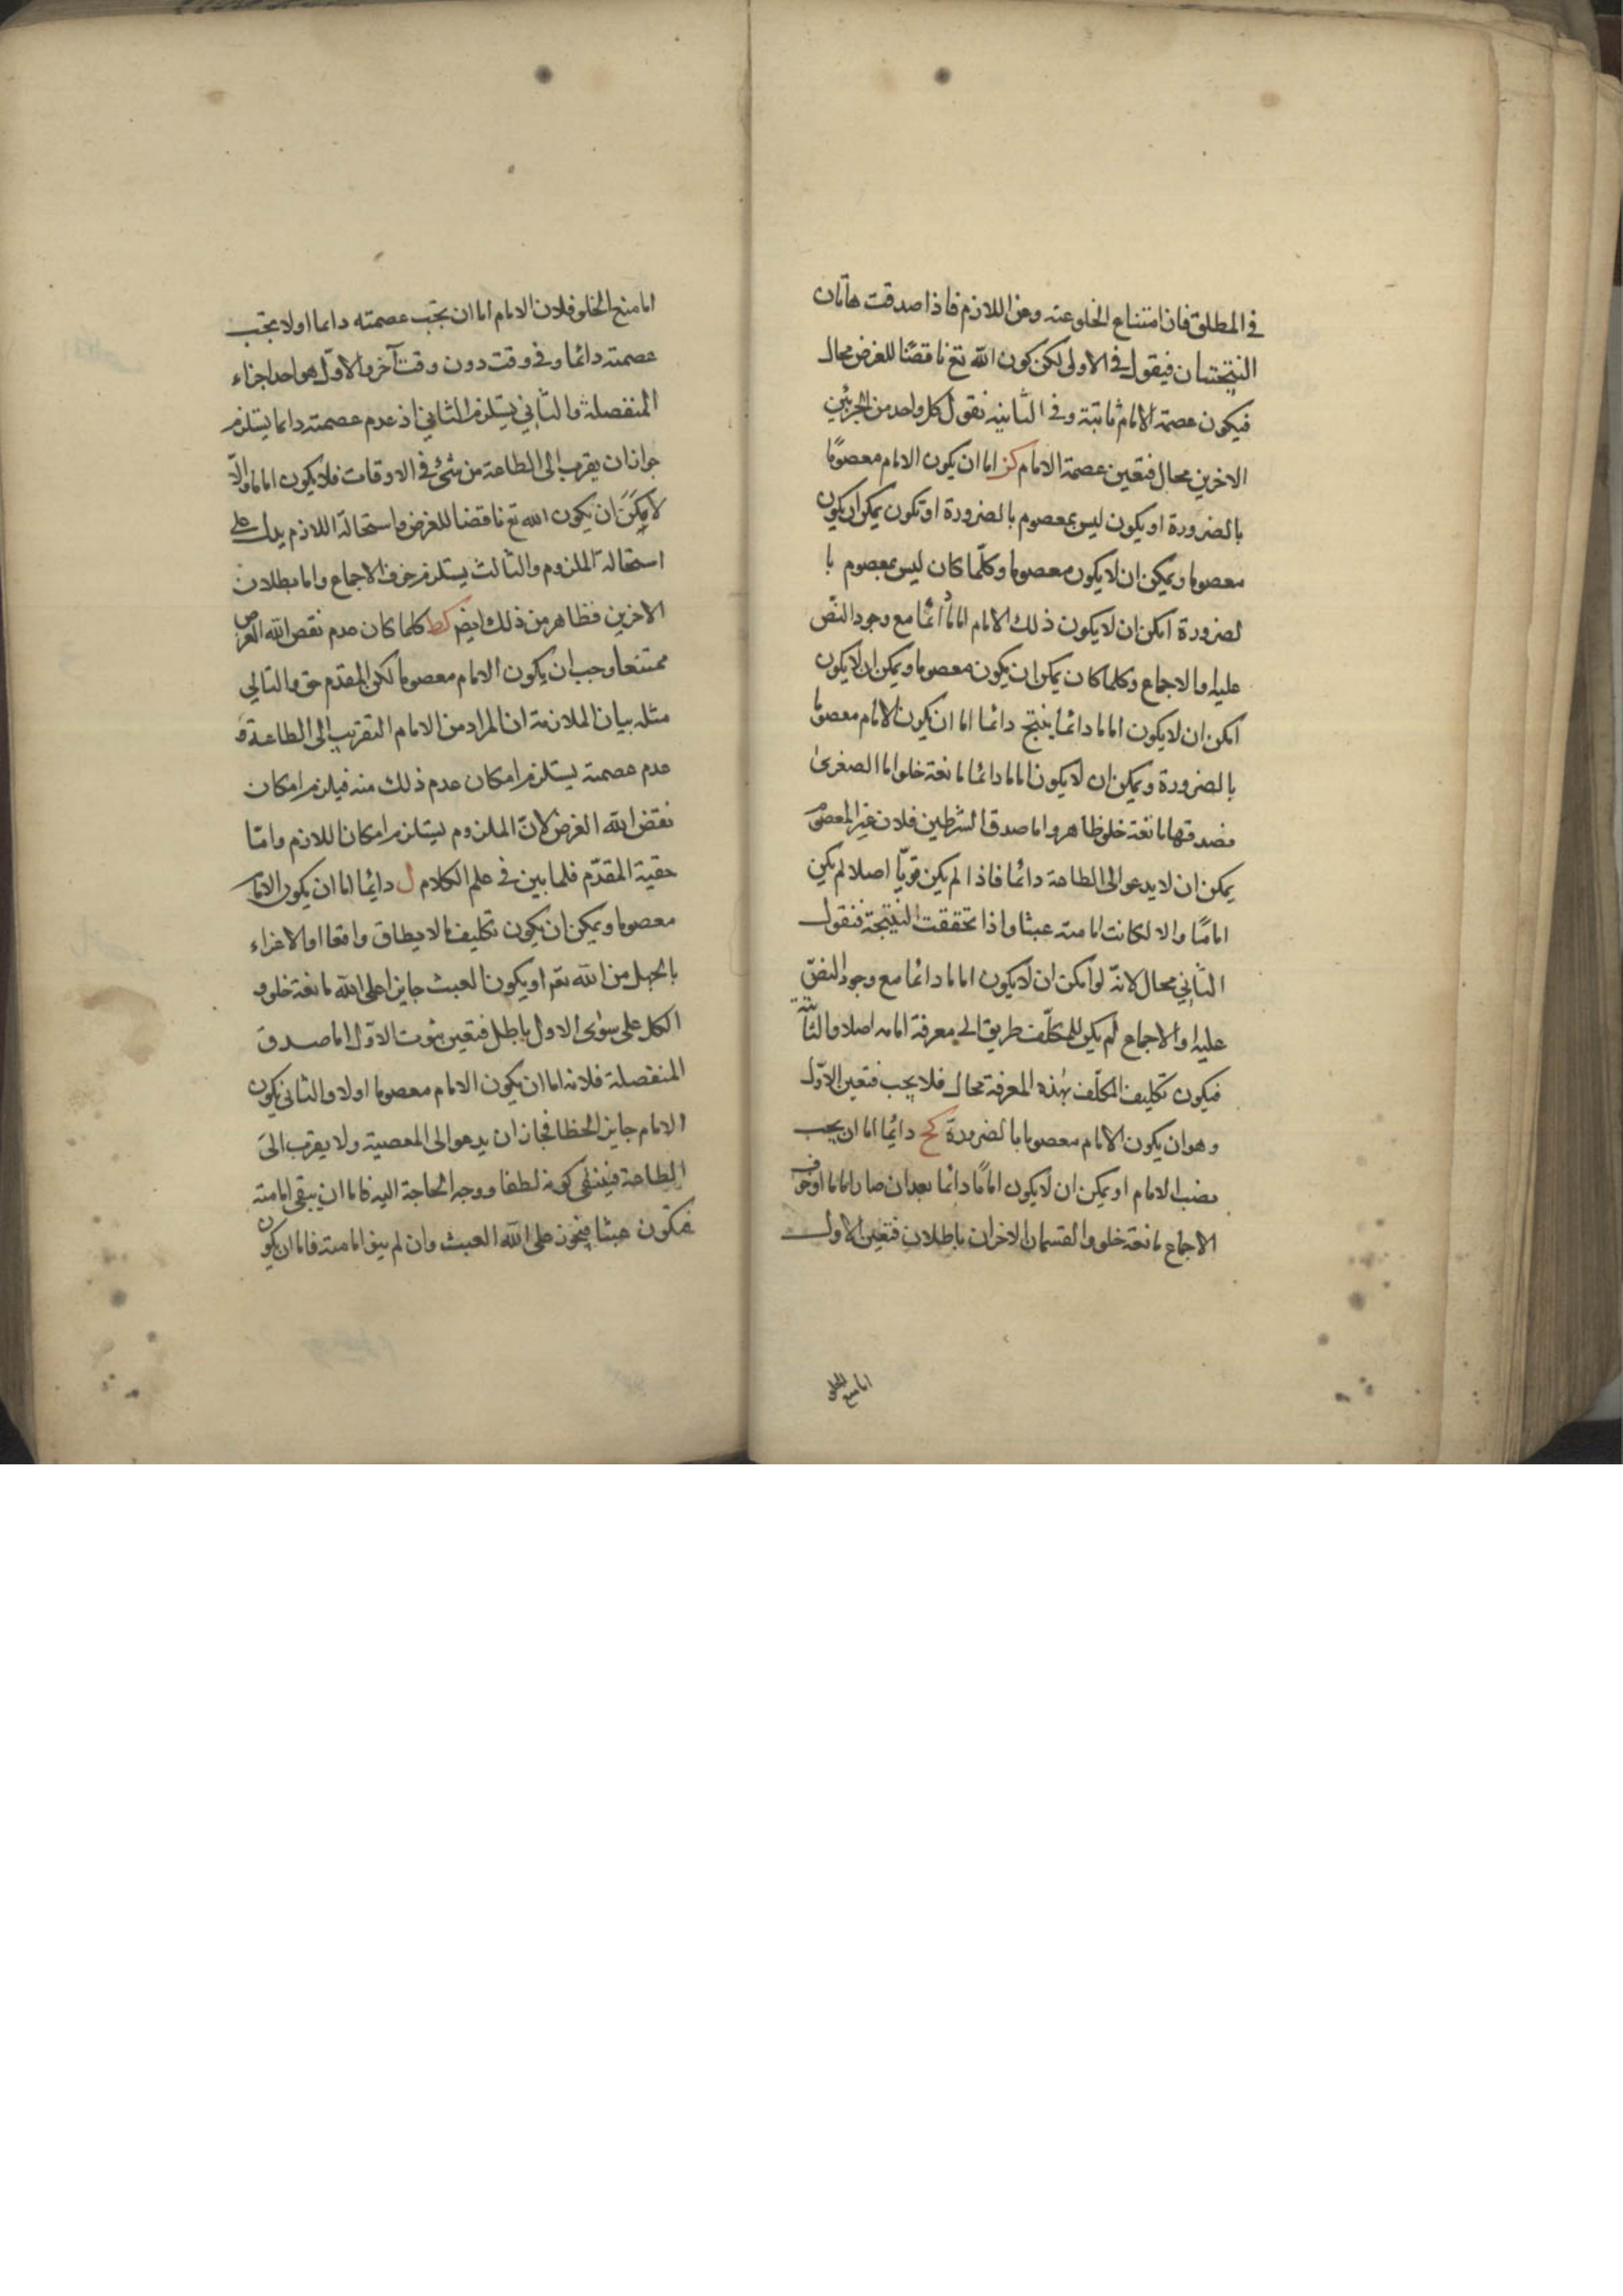 في المطلق فان امتناع الخلو عنه وعن اللازم فاذا صدقت هاتان
النتيجتان فيقول في الاولى لكن كون الله تع ناقضًا للغرض محال
فيكون عصمة الامام ثابتة وفي الثانية نقول كل واحد من الجزئين
الاخرين محال فتعين عصمة الامام كز اما ان يكون الامام معصومًا
بالضرورة او يكون ليس بمعصوم بالضرورة او تكون يمكن ان يكون
معصوما ويمكن ان لا يكون معصوما وكلّما كان ليس بمعصوم با
لضرورة امكن ان لا يكون ذلك الامام اماما دائما مع وجود النص
عليه والاجماع وكلما كان يمكن ان يكون معصوما ويمكن ان لا يكون
امكن ان لا يكون اماما دائما ينتج دائما اما ان يكون الامام معصوما
بالضرورة ويمكن ان لا يكون اماما دائما مانعة خلو اما الصغرى
فصدقها مانعة خلو ظاهر واما صدق الشرطين فلان غير المعصوم
يمكن ان لا يدعو الى الطاعة دائما فاذا لم يكن مقربّا اصلا لم يكن
امامًا والا لكانت امامته عبثا واذا تحققت النتيجة فنقول
الثاني محال لانّه لو امكن ان لا يكون اماما دائما مع وجود النص
عليه والاجماع لم يكن للمكلّف طريق الى معرفة امامه اصلا والثانية
فيكون تكليف المكلّف بهذه المعرفة محال فلا يجب فتعين الاوّل
وهو ان يكون الامام معصوما بالضرورة كح دائما اما ان يجب
نصب الامام او يمكن ان لا يكون امامًا دائما بعد ان صار اماما او خرق
الاجماع مانعة خلو والقسمان الاخران باطلان فتعين الاول
اما منع الخلو
اما منع الخلو فلان الامام اما ان يجب عصمته دائما او لا يجب
عصمته دائما وفي وقت دون وقت آخر والاوّل هو احد اجزاء
المنفصلة والثاني يستلزم الثاني اذ عدم عصمته دائما يستلزم
جواز ان يقرب الى الطاعة من شئ في الاوقات فلا يكون اماما والّا
لامكن ان يكون الله تع ناقضا للغرض واستحالة اللازم يدل على
استحالة الملزوم والثالث يستلزم خرق الاجماع واما بطلان
الاخرين فظاهر من ذلك ايضم كط كلما كان عدم نقض الله الغرض
ممتنعا وجب ان يكون الامام معصوما لكن المقدم حق والتالي
مثله بيان الملازمة ان المراد من الامام التقريب الى الطاعة و
عدم عصمته يستلزم امكان عدم ذلك منه فيلزم امكان
نقض الله الغرض لانّ الملزوم يستلزم امكان اللازم وامّا
حقية المقدّم فلما بين في علم الكلام ل دائما اما ان يكون الامام
معصوما ويمكن ان يكون تكليف ما لا يطاق واقعا او الاغراء
بالجهل من الله تعم او يكون العبث جايزا على الله مانعة خلو و
الكل على سوى الاول باطل فتعين ثبوت الاوّل اما صدق
المنفصلة فلانه اما ان يكون الامام معصوما او لا والثاني يكون
الامام جايز الخطا فجاز ان يدعو الى المعصية ولا يقرب الى
الطاعة فينتفى كونه لطفا ووجه الحاجة اليه فاما ان يبقى امامته
فتكون عبثا فيجوز على الله العبث وان لم يبق امامته فاما ان يكون